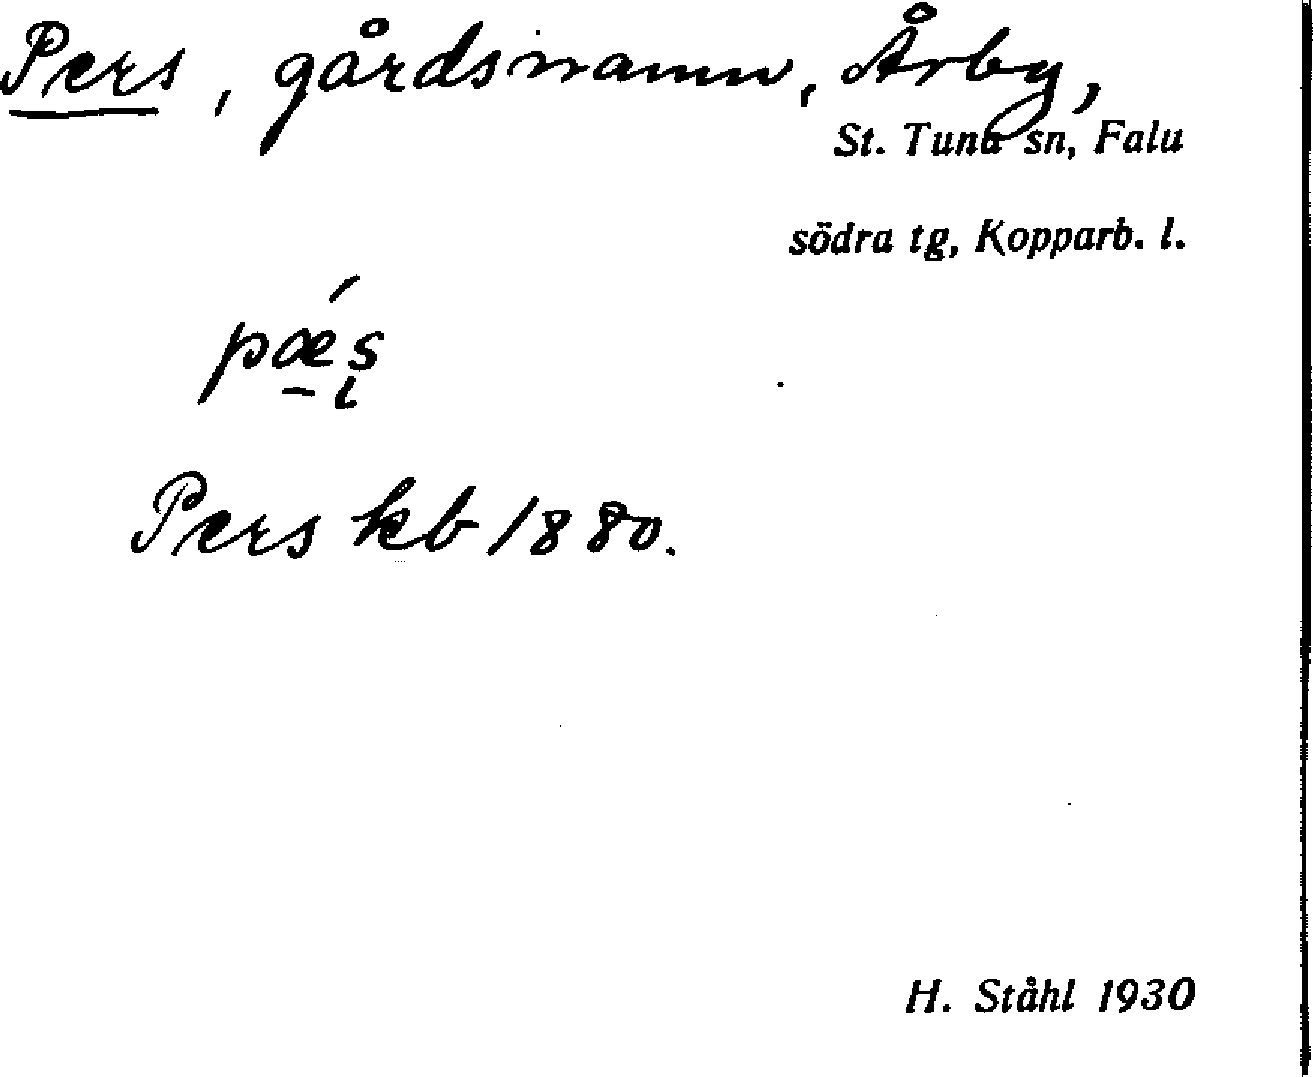 Pers, gårdsnamn, Årby,
St. Tuna sn, Falu
södra tg, Kopparb. l.
pǽ̱ʂ
Pers kb 1880.
H. Ståhl 1930